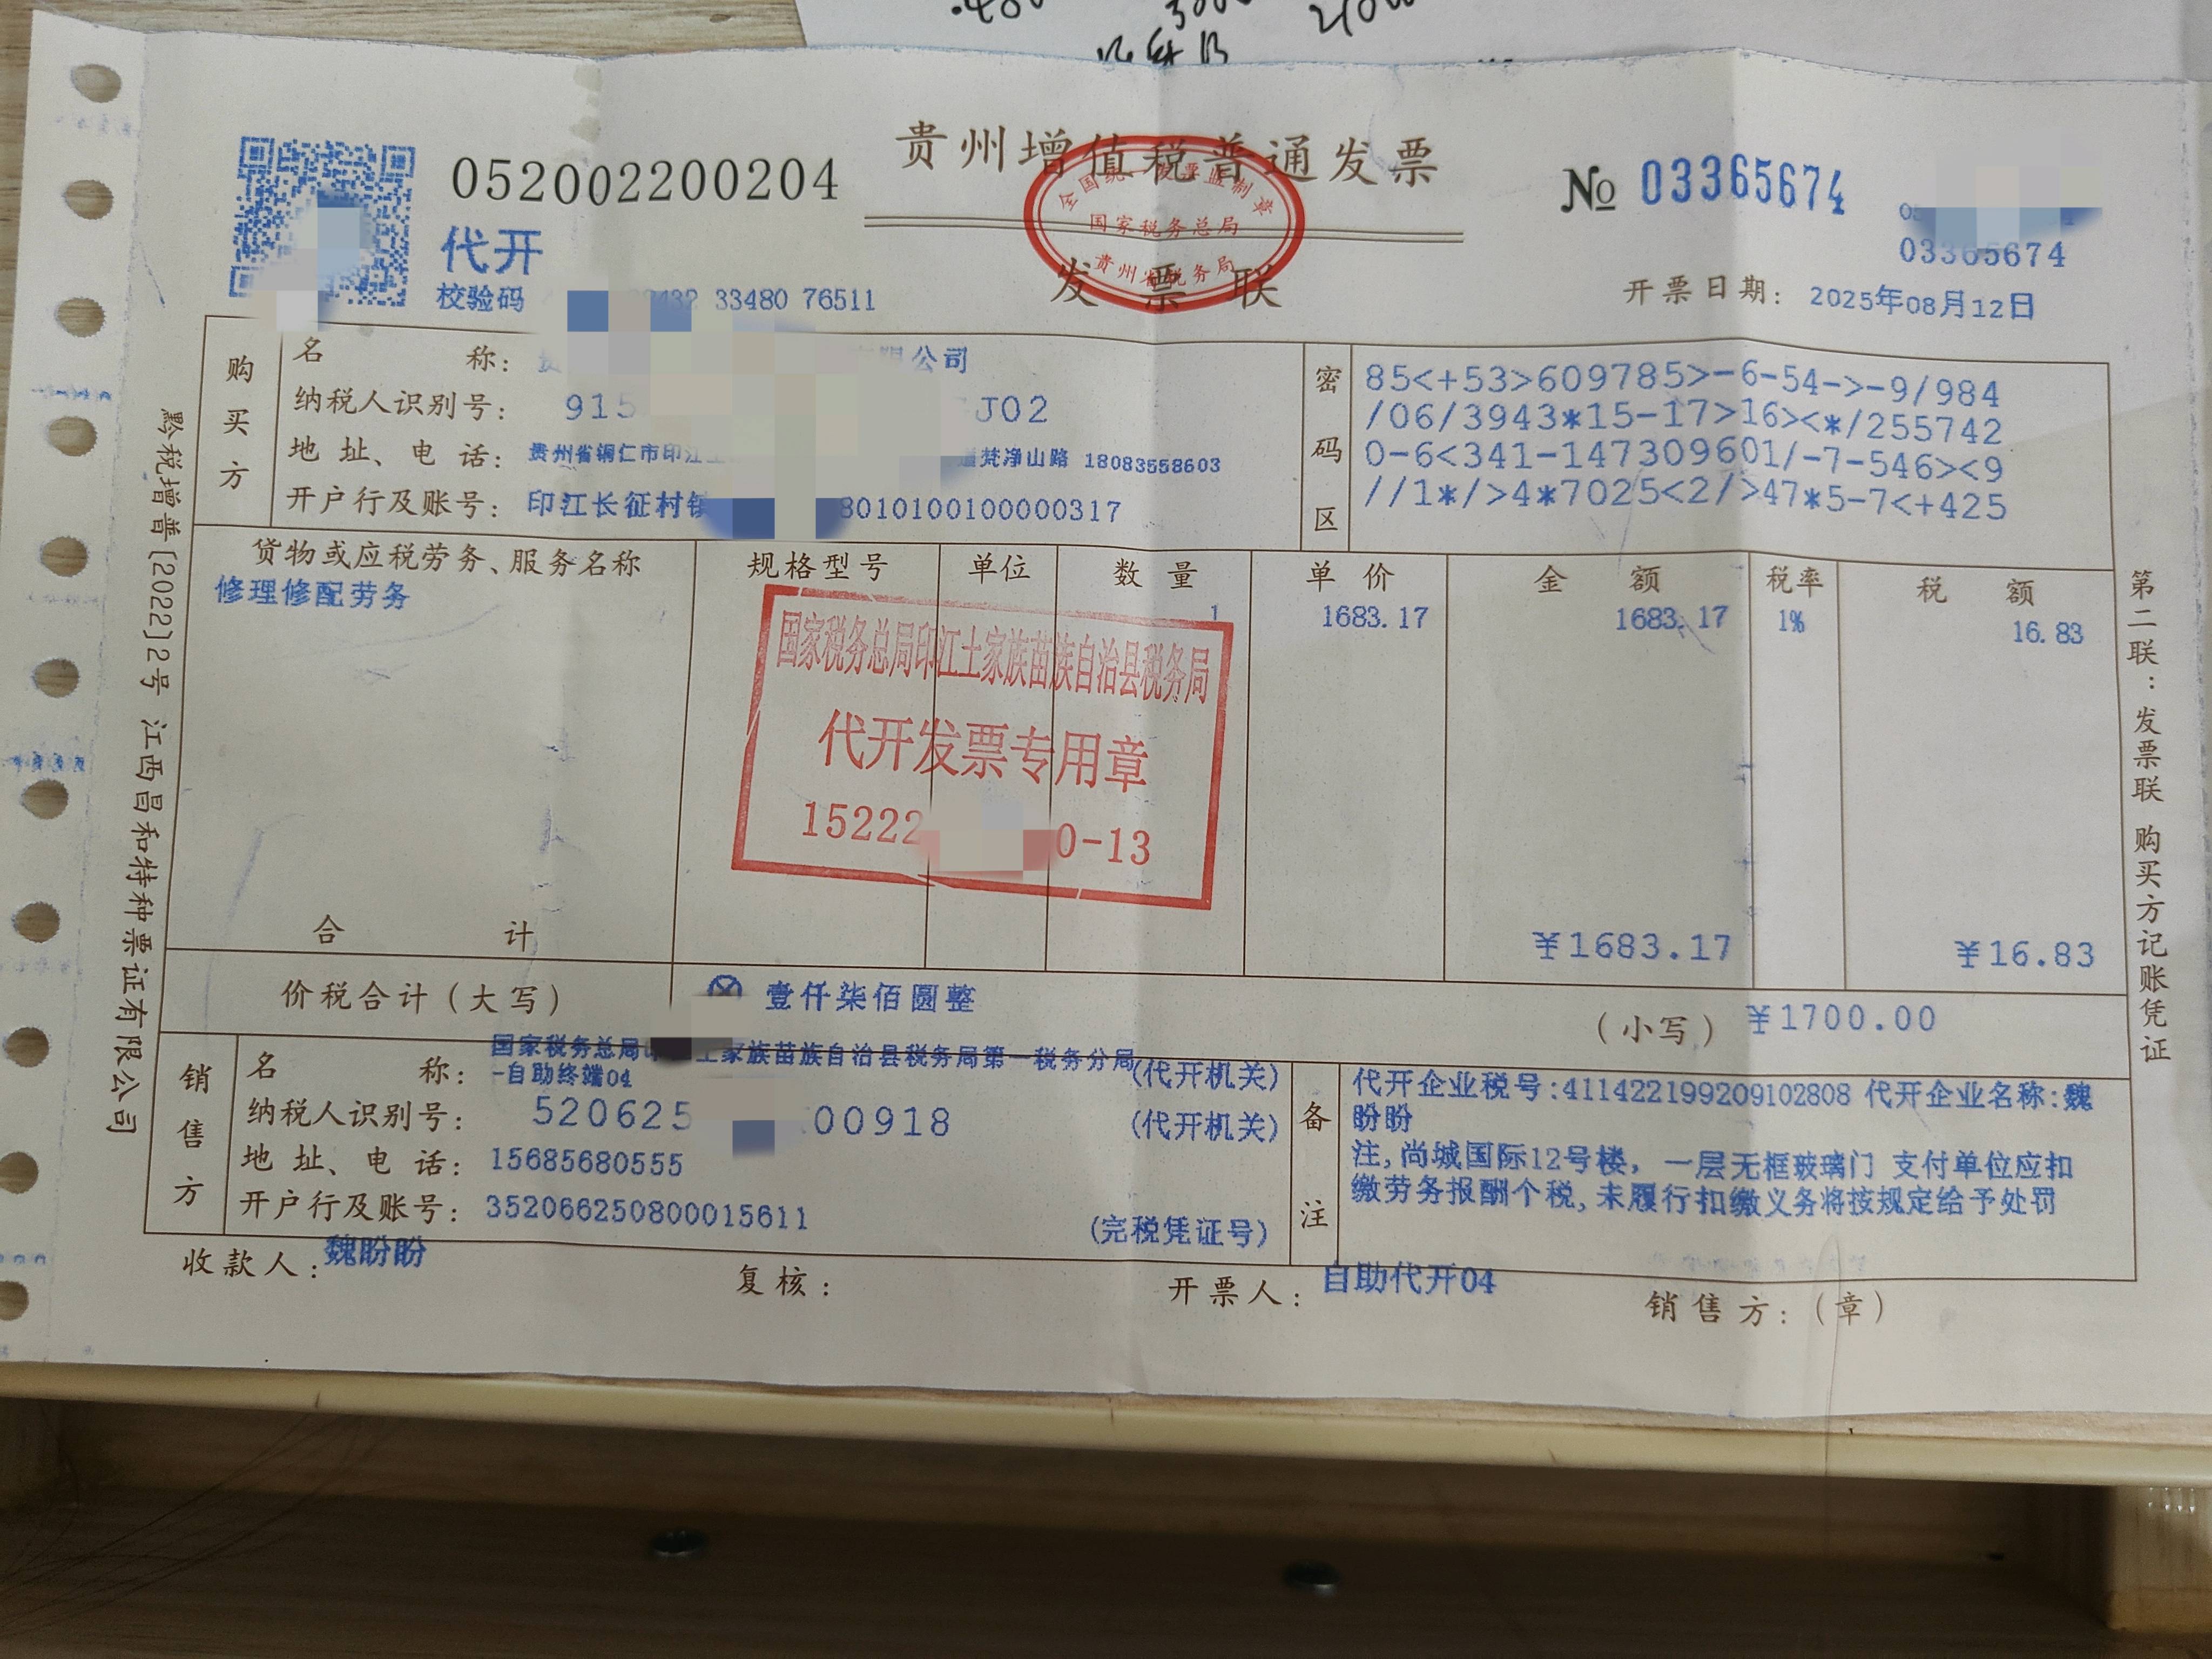 贵州增值税普通发票
052002200204
代开
№ 03365674
03365674
全国统一发票监制章
国家税务总局
贵州省税务局
发票联
校验码 33480 76511
开票日期: 2025年08月12日
购买方
名称: 限公司
纳税人识别号: 915 J02
地址、电话: 贵州省铜仁市印江 梵净山路 18083558603
开户行及账号: 印江长征村镇 8010100100000317
密码区
85<+53>609785>-6-54->-9/984
/06/3943*15-17>16><*/255742
0-6<341-147309601/-7-546><9
//1*/>4*7025<2/>47*5-7<+425
货物或应税劳务、服务名称 规格型号 单位 数量 单价 金额 税率 税额
修理修配劳务 1 1683.17 1683.17 1% 16.83
国家税务总局印江土家族苗族自治县税务局
代开发票专用章
15222 0-13
合计 ¥1683.17 ¥16.83
价税合计(大写) 壹仟柒佰圆整 (小写) ¥1700.00
销售方
名称: 国家税务总局 土家族苗族自治县税务局第一税务分局
-自助终端04 (代开机关)
纳税人识别号: 520625 00918 (代开机关)
地址、电话: 15685680555
开户行及账号: 352066250800015611 (完税凭证号)
备注
代开企业税号:411422199209102808 代开企业名称:魏
盼盼
注,尚城国际12号楼, 一层无框玻璃门 支付单位应扣
缴劳务报酬个税,未履行扣缴义务将按规定给予处罚
收款人: 魏盼盼 复核: 开票人: 自助代开04 销售方:(章)
黔税增普[2022]2号 江西昌和特种票证有限公司
第二联:发票联 购买方记账凭证